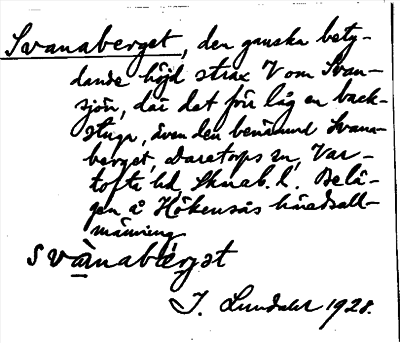 Svanaberget, den ganska bety-
dande höjd strax V om Svan-
sjön, där det förr låg en back-
stuga, även den benämnd Svana-
berget, Daretorps sn, Var-
tofta hd, Skarab. l. Belä-
gen å Hökensås häradsall-
männing.
svànabérget
J. Lundahl 1928.